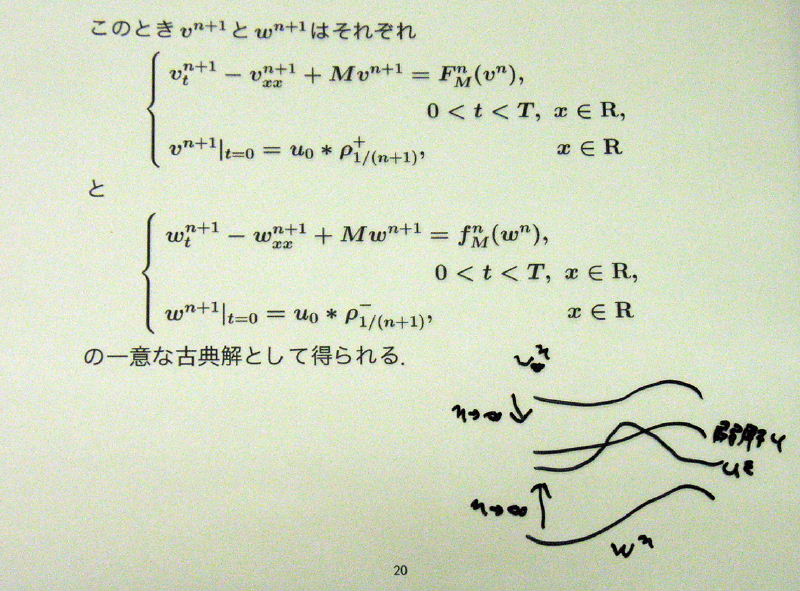 このとき v^{n+1} と w^{n+1} はそれぞれ
v_t^{n+1} − v_{xx}^{n+1} + Mv^{n+1} = F_M^n(v^n),
0 < t < T, x ∈ R,
v^{n+1}|_{t=0} = u_0 * ρ^+_{1/(n+1)}, x ∈ R
と
w_t^{n+1} − w_{xx}^{n+1} + Mw^{n+1} = f_M^n(w^n),
0 < t < T, x ∈ R,
w^{n+1}|_{t=0} = u_0 * ρ^-_{1/(n+1)}, x ∈ R
の一意な古典解として得られる.
n→∞
n→∞
w^n
20